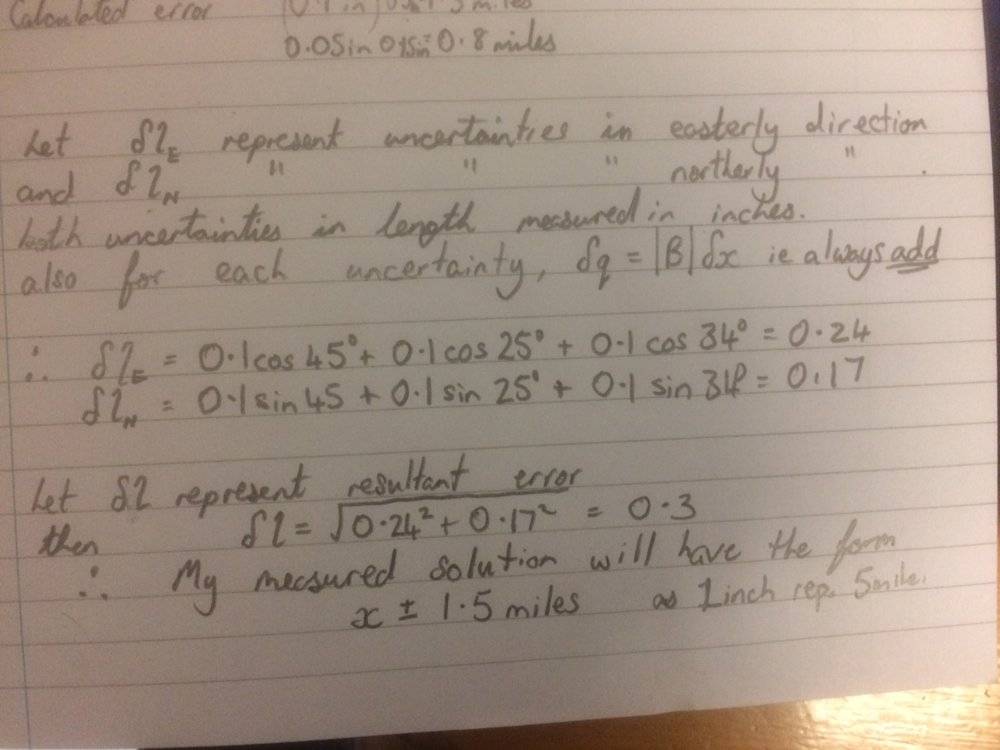 Calculated error (0.1 in) miles
0.05in = 0.8 miles
Let δl_E represent uncertainties in easterly direction
and δl_N " " " northerly " .
both uncertainties in length measured in inches.
also for each uncertainty, δq = |B|δx ie always add
∴ δl_E = 0.1cos 45° + 0.1cos 25° + 0.1 cos 34° = 0.24
δl_N = 0.1 sin 45 + 0.1 sin 25° + 0.1 sin 34° = 0.17
Let δl represent resultant error
then δl = √0.24² + 0.17² = 0.3
∴ My measured solution will have the form
x ± 1.5 miles as 1 inch rep. 5mile.